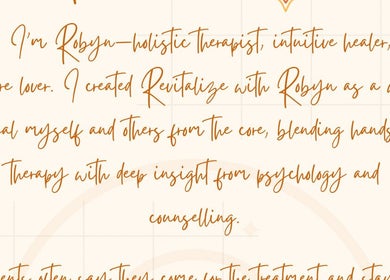 I'm Robyn—holistic therapist, intuitive healer,
re lover. I created Revitalize with Robyn as a
al myself and others from the core, blending hands
therapy with deep insight from psychology and
counselling.
ents often say they come for the treatment and stay